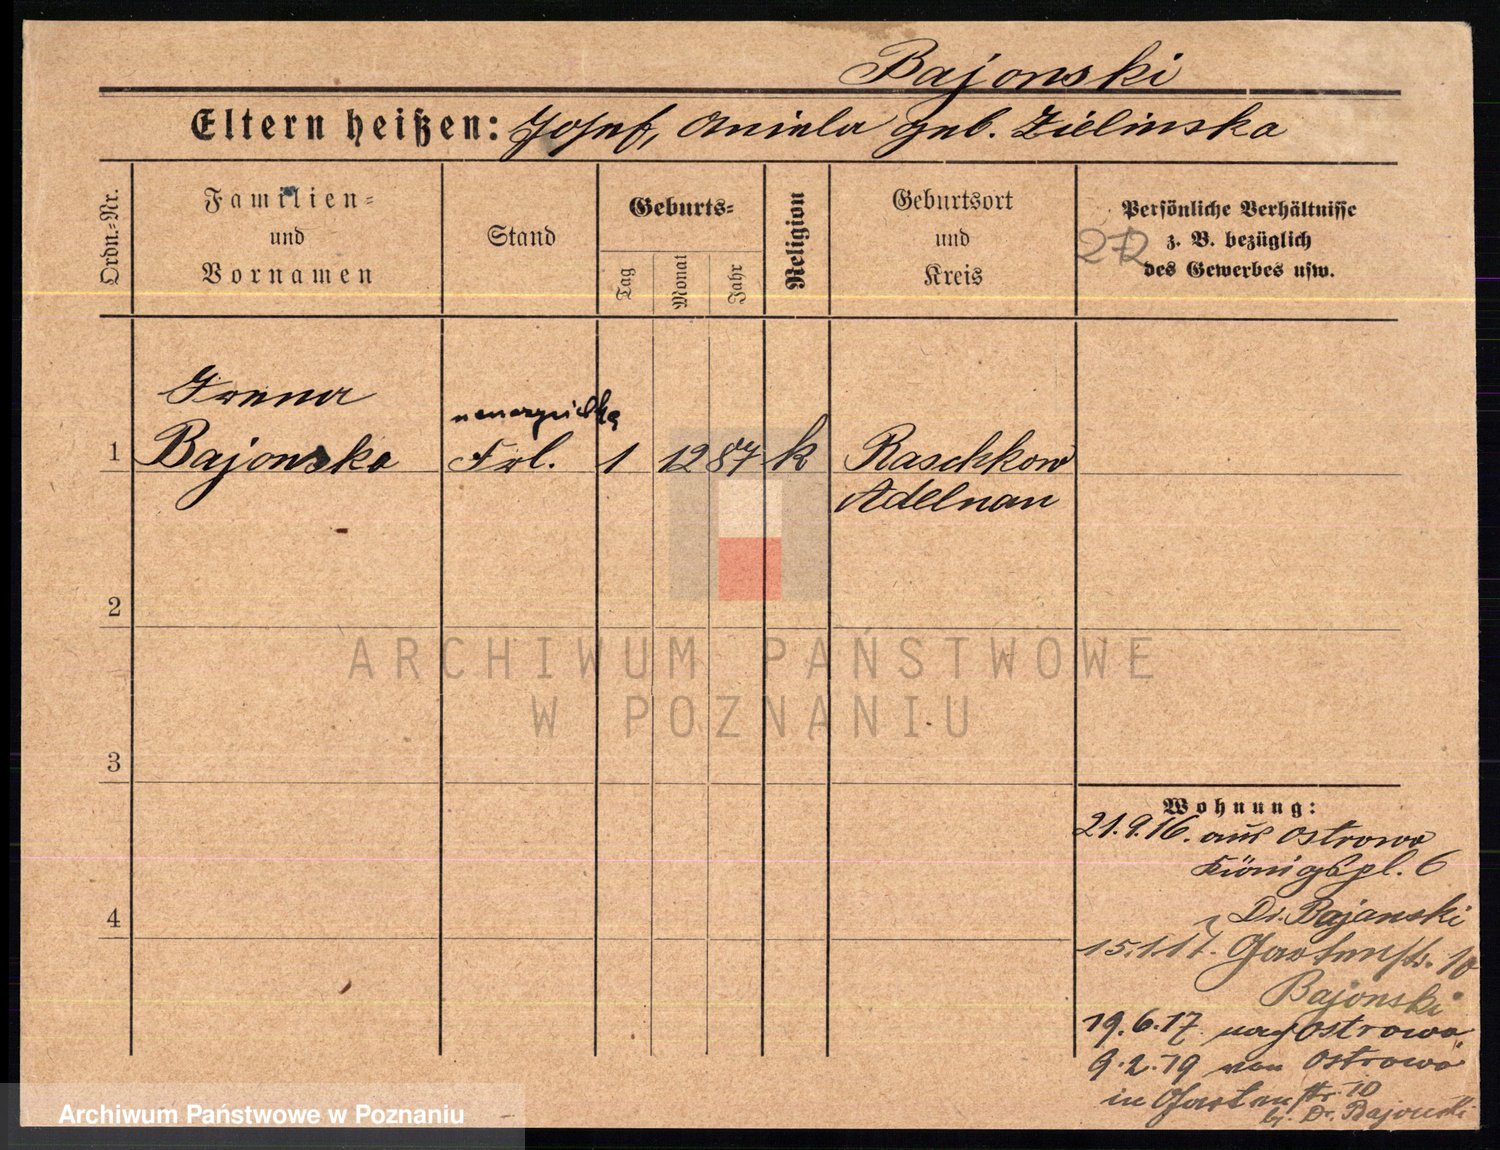 Bajonski
Eltern heißen: Josef, Aniela geb. Zielinska
Ordn.-Nr.
Familien-
und
Vornamen
Stand
Geburts-
Tag
Monat
Jahr
Religion
Geburtsort
und
Kreis
Persönliche Verhältnisse
z. B. bezüglich
des Gewerbes usw.
272
Irena
nauczycielka
1 Bajonska Frl. 1 12 87 k Raschkow
Adelnau
2
ARCHIWUM PAŃSTWOWE
W POZNANIU
3
Wohnung:
21.9.16. aus Ostrowo
Königspl. 6
4
Dr. Bajanski
15.1.17. Gartenstr. 10
Bajonski
19.6.17. nach Ostrowo
9.2.19 von Ostrowo
in Gartenstr. 10
b. Dr. Bajonski
Archiwum Państwowe w Poznaniu